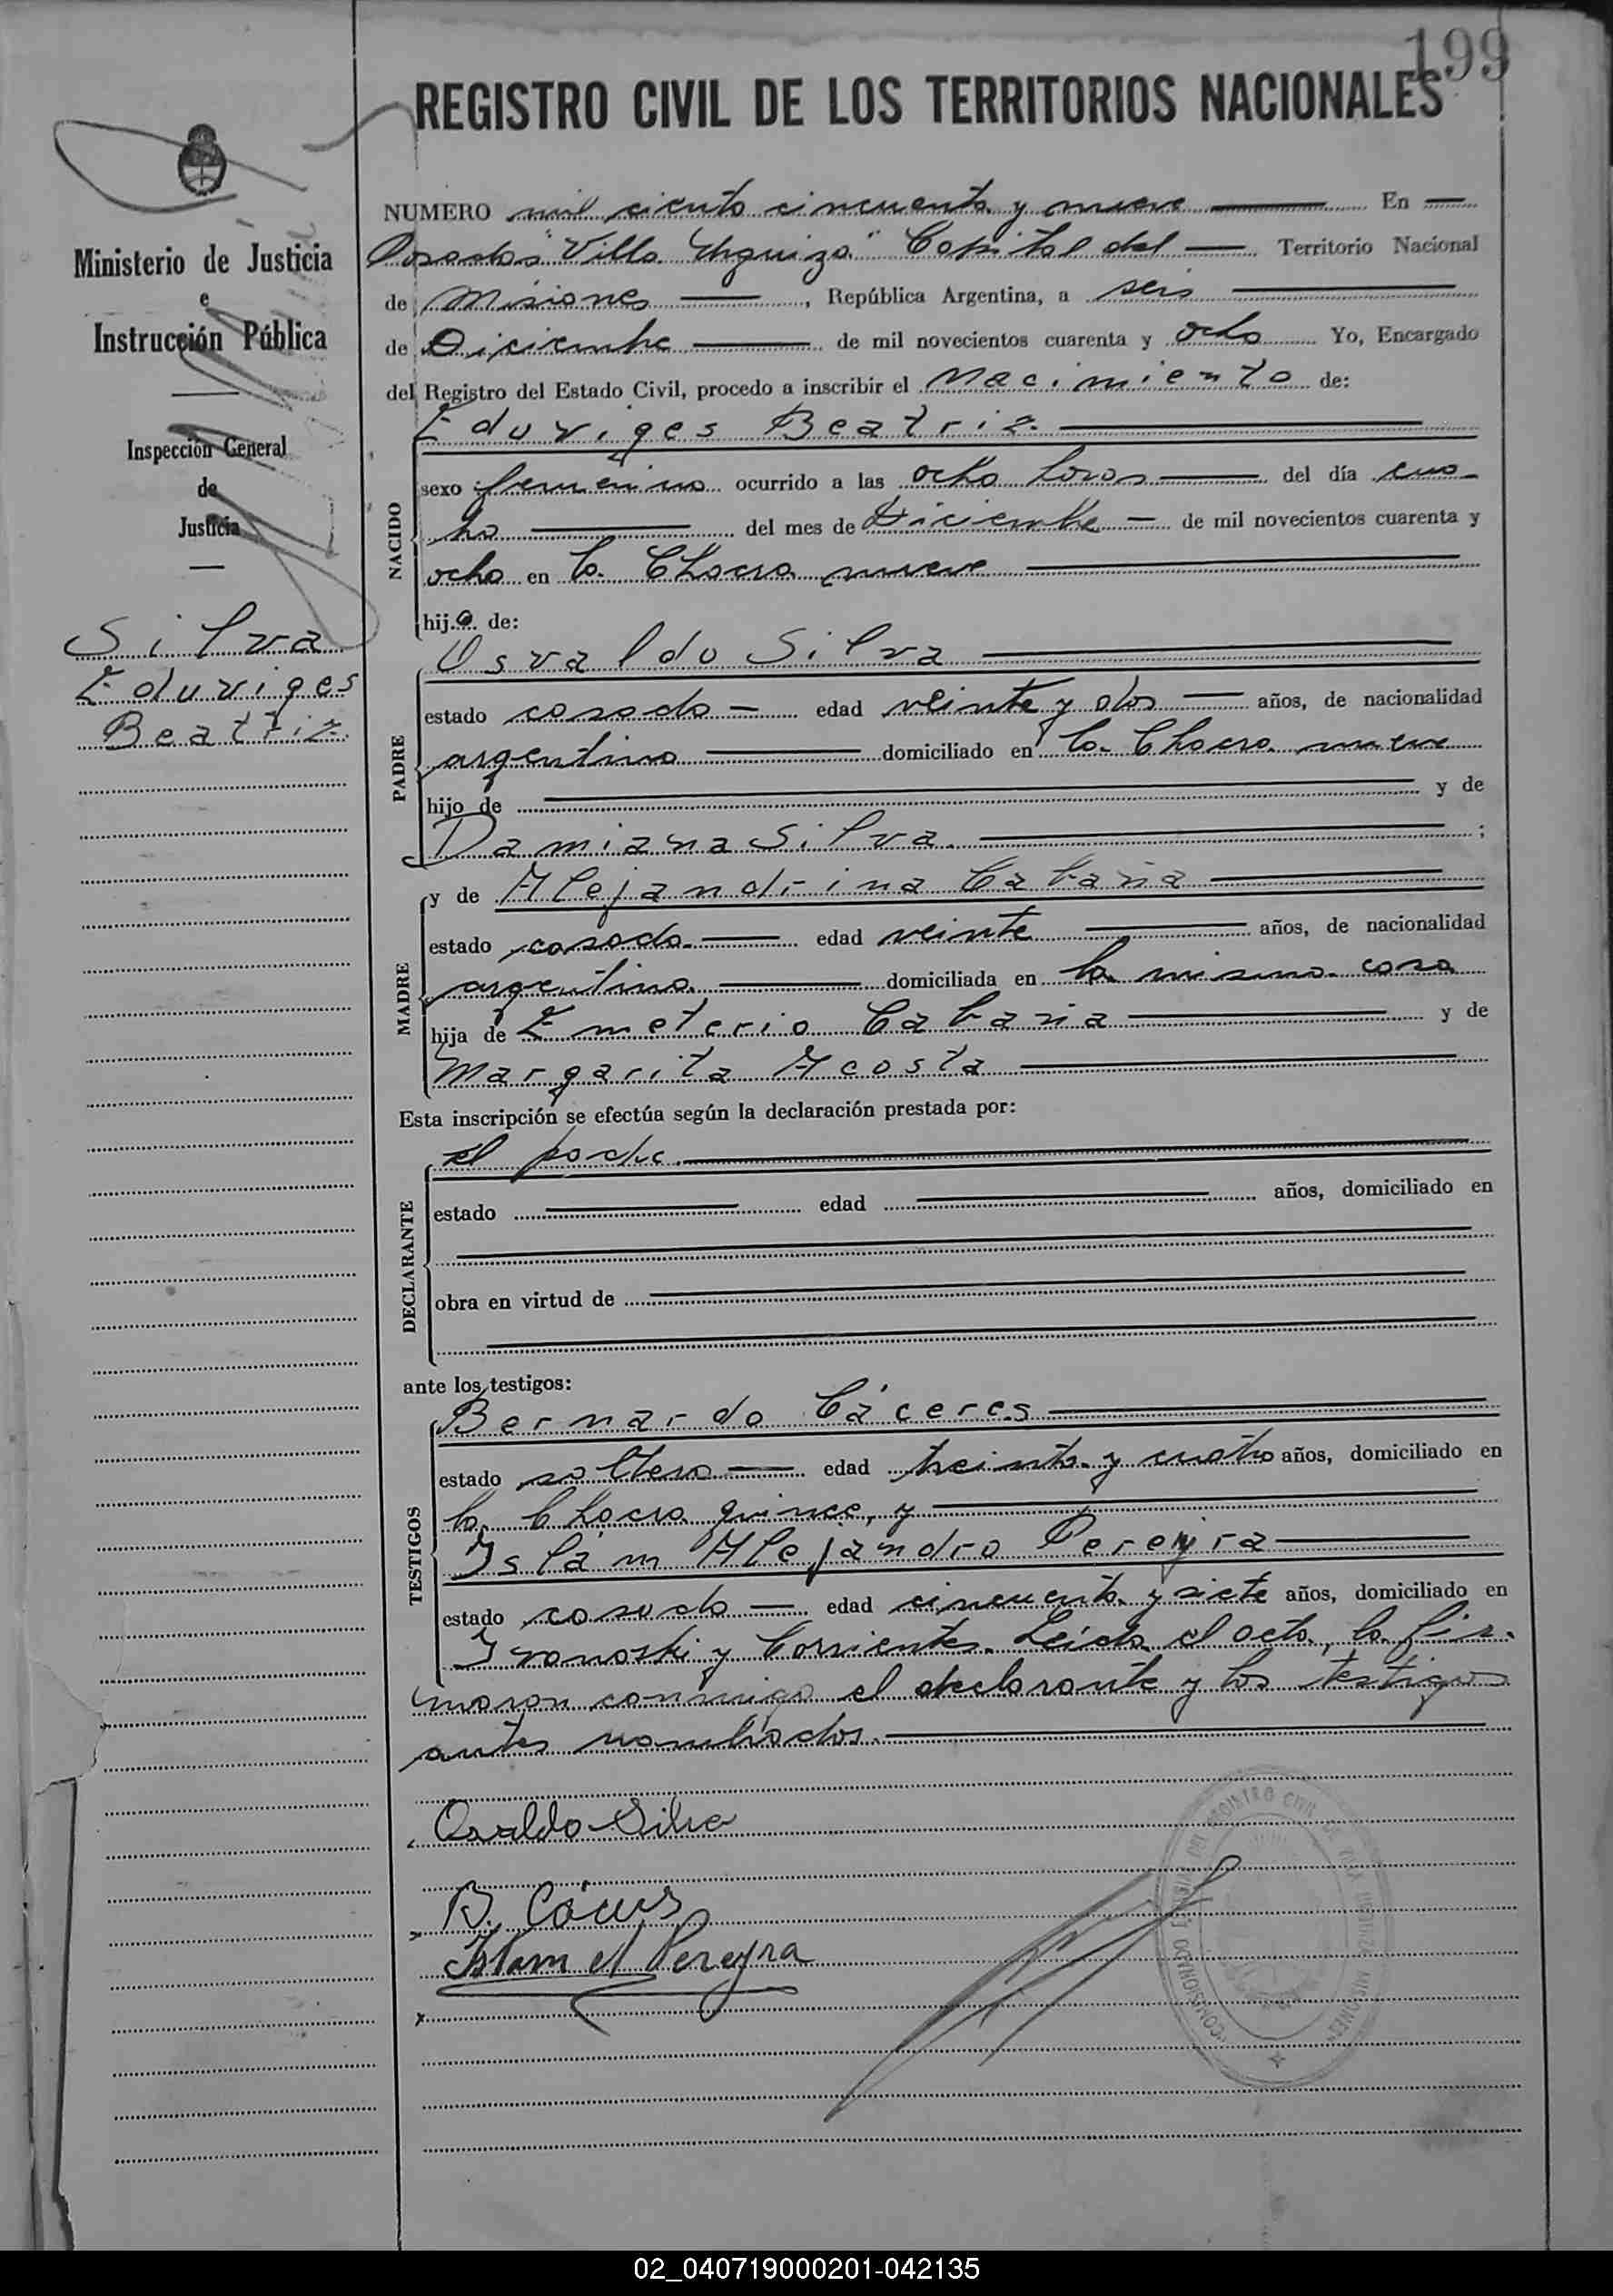 199
REGISTRO CIVIL DE LOS TERRITORIOS NACIONALES
Ministerio de Justicia
e
Instrucción Pública
Inspección General
de
Justicia
Silva
Eduviges
Beatriz
NUMERO mil ciento cincuenta y nueve En
Posadas "Villa Urquiza" Capital del Territorio Nacional
de Misiones, República Argentina, a seis
de Diciembre de mil novecientos cuarenta y ocho Yo, Encargado
del Registro del Estado Civil, procedo a inscribir el Nacimiento de:
NACIDO
Eduviges Beatriz
sexo femenino ocurrido a las ocho horas del día cua-
tro del mes de Diciembre de mil novecientos cuarenta y
ocho en la Chacra nueve
hija de:
PADRE
Osvaldo Silva
estado casado edad veinte y dos años, de nacionalidad
argentino domiciliado en la Chacra nueve
hijo de y de
Damiana Silva ;
MADRE
y de Alejandrina Cabaña
estado casada edad veinte años, de nacionalidad
argentina domiciliada en la misma casa
hija de Emeterio Cabaña y de
Margarita Acosta
Esta inscripción se efectúa según la declaración prestada por:
DECLARANTE
el padre
estado edad años, domiciliado en
obra en virtud de
ante los testigos:
TESTIGOS
Bernardo Cáceres
estado soltero edad treinta y cuatro años, domiciliado en
la Chacra quince, y
Islám Alejandro Pereyra
estado casado edad cincuenta y siete años, domiciliado en
Ivanoski y Corrientes. Leída el acta, la fir-
maron conmigo el declarante y los testigos
antes nombrados.
Osvaldo Silva
B. Cáceres
Islam A Pereyra
REGISTRO CIVIL
MISIONES
02_040719000201-042135